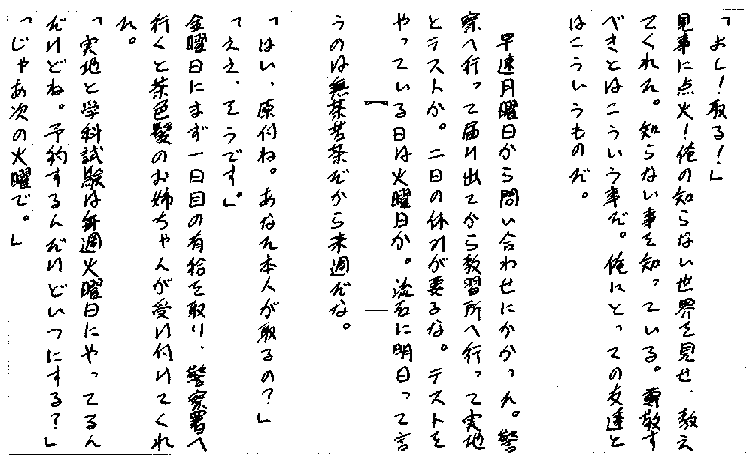 「よし！取る！」
見事に点火！俺の知らない世界を見せ、教え
てくれた。知らない事を知っている。尊敬す
べきとはこういう事だ。俺にとっての友達と
はこういうものだ。
早速月曜日から問い合わせにかかった。警
察へ行って届け出てから教習所へ行って実地
とテストか。二日の休みが要るな。テストを
やっている日は火曜日か。流石に明日って言
うのは無茶苦茶だから来週だな。
「はい、原付ね。あなた本人が取るの？」
「ええ、そうです。」
金曜日にまず一日目の有給を取り、警察署へ
行くと茶色髪のお姉ちゃんが受け付けてくれ
た。
「実地と学科試験は毎週火曜日にやってるん
だけどね。予約するんだけどいつにする？」
「じゃあ次の火曜で。」